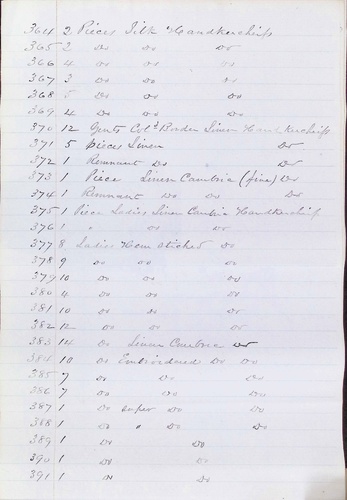 364 2 Pieces Silk Handkerchifs
365 2 Do Do Do
366 4 Do Do Do
367 3 Do Do Do
368 5 Do Do Do
369 4 Do Do Do
370 12 Gents Cold Border Linen Handkerchifs
371 5 pieces Linen Do
372 1 Remnant Do " Do
373 1 Piece Linen Cambria (fine) Do
374 1 Remnant Do Do Do
375 1 Piece Ladies Linen Cambia Handkerchifs
376 1 " Do Do
377 8 Ladies Hem stiched Do
378 9 Do Do Do
379 10 Do Do Do
380 4 Do Do Do
381 10 Do Do Do
382 12 Do Do Do
383 14 Do Linen Cambria Do
384 10 Do Embroidered Do Do
385 7 Do Do Do
386 7 Do Do Do
387 1 Do super Do Do
388 1 Do " Do Do
389 1 Do Do
390 1 Do Do
391 1 Do Do